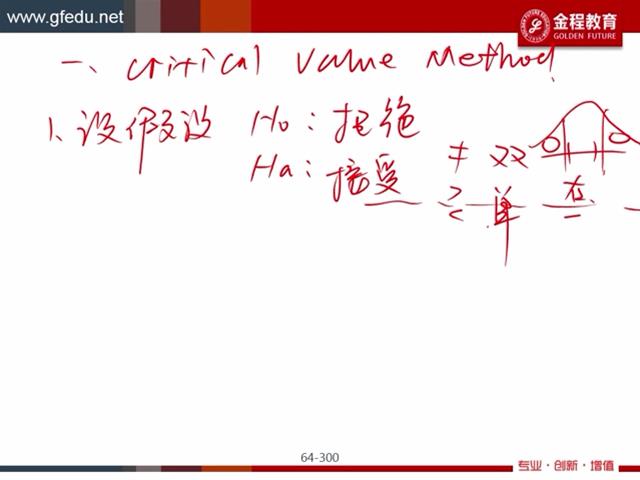 www.gfedu.net
金程教育
GOLDEN FUTURE
一、critical value Method
1、设假设 H0：拒绝
Ha：接受
≠ 双
> 单 右
<
64-300
专业·创新·增值